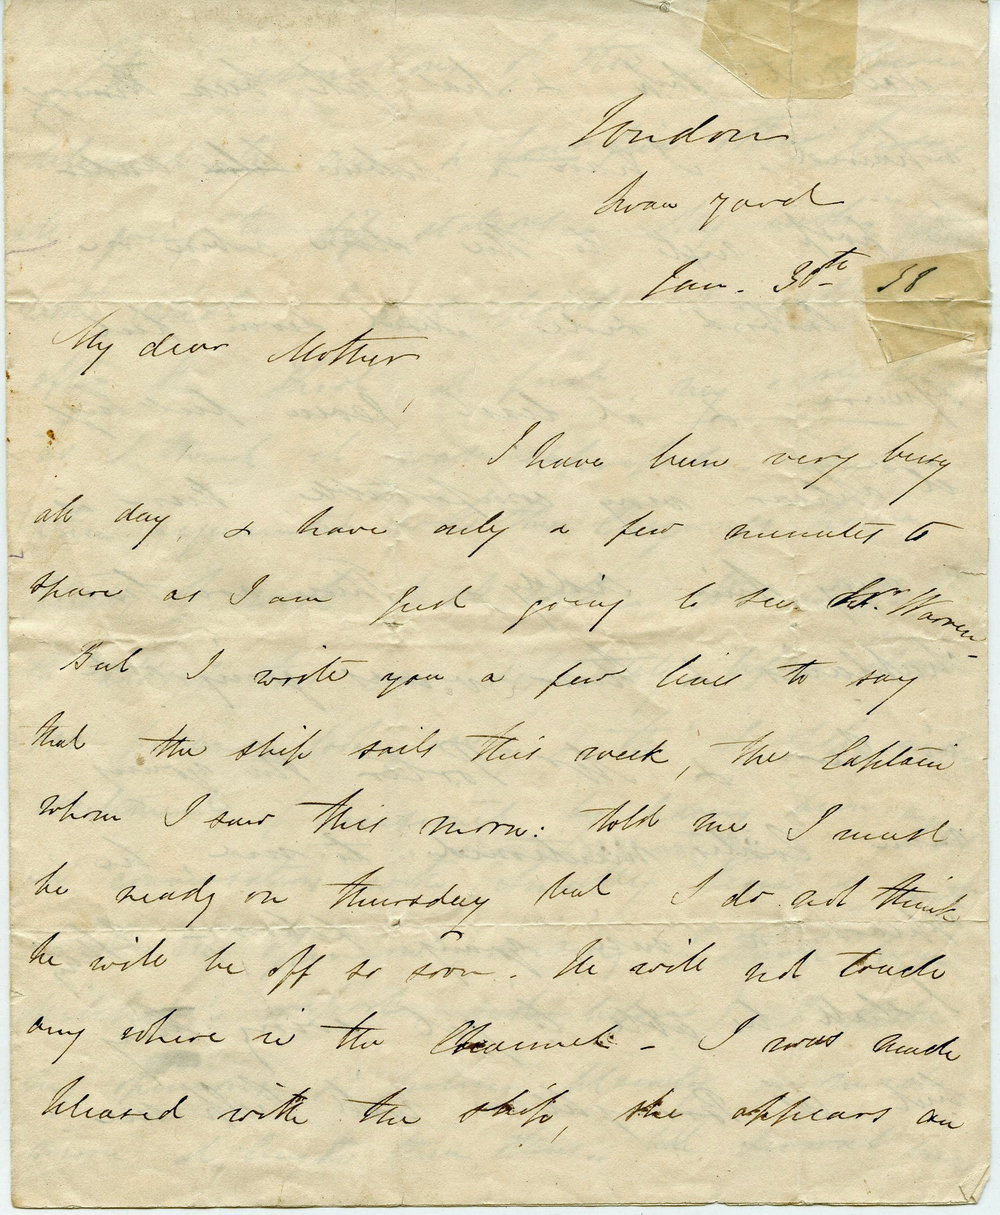 London
Swan Yard
Jan. 30th 38
My dear Mother,
I have been very busy
all day, & have only a few minutes to
spare as I am just going to see Mr. Warren -
But I write you a few lines to say
that the ship sails this week, the Captain
whom I saw this morn: told me I must
be ready on Thursday but I do not think
he will be off so soon. He will not touch
any where in the Channel - I was much
pleased with the ship, she appears an